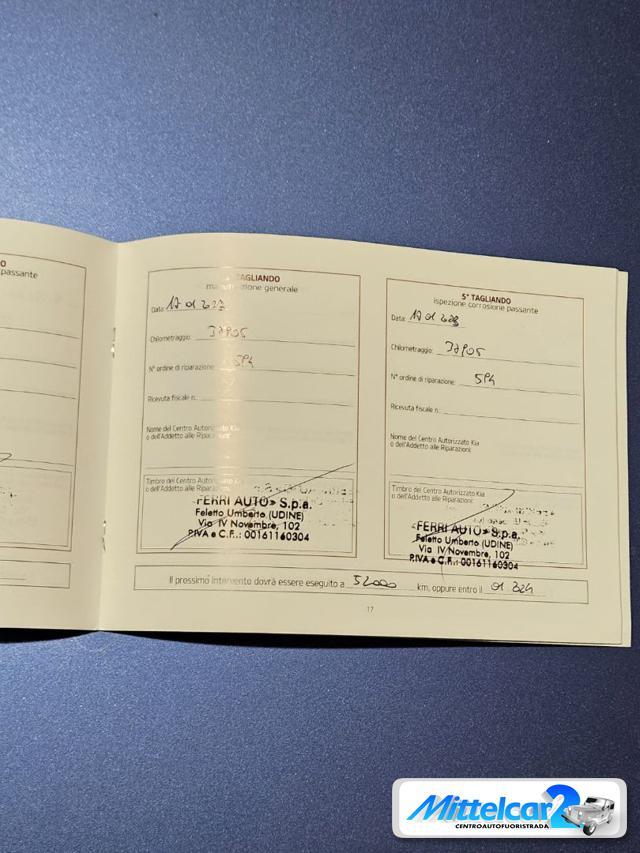 O
passante
TAGLIANDO
manutenzione generale
Data: 17 01 2023
Chilometraggio: 37905
N° ordine di riparazione: 594
Ricevuta fiscale n.:
Nome del Centro Autorizzato Kia
o dell'Addetto alle Riparazioni:
Timbro del Centro Autorizzato Kia
o dell'Addetto alle Riparazioni:
FERRI AUTO S.p.a.
Feletto Umberto (UDINE)
Via IV Novembre, 102
P.IVA e C.F.: 00161160304
5° TAGLIANDO
ispezione corrosione passante
Data: 17 01 2023
Chilometraggio: 37905
N° ordine di riparazione: 594
Ricevuta fiscale n.:
Nome del Centro Autorizzato Kia
o dell'Addetto alle Riparazioni:
Timbro del Centro Autorizzato Kia
o dell'Addetto alle Riparazioni:
FERRI AUTO S.p.a.
Feletto Umberto (UDINE)
Via IV Novembre, 102
P.IVA e C.F.: 00161160304
Il prossimo intervento dovrà essere eseguito a 52000 km, oppure entro il 01 2024
17
Mittelcar2
CENTROAUTOFUORISTRADA